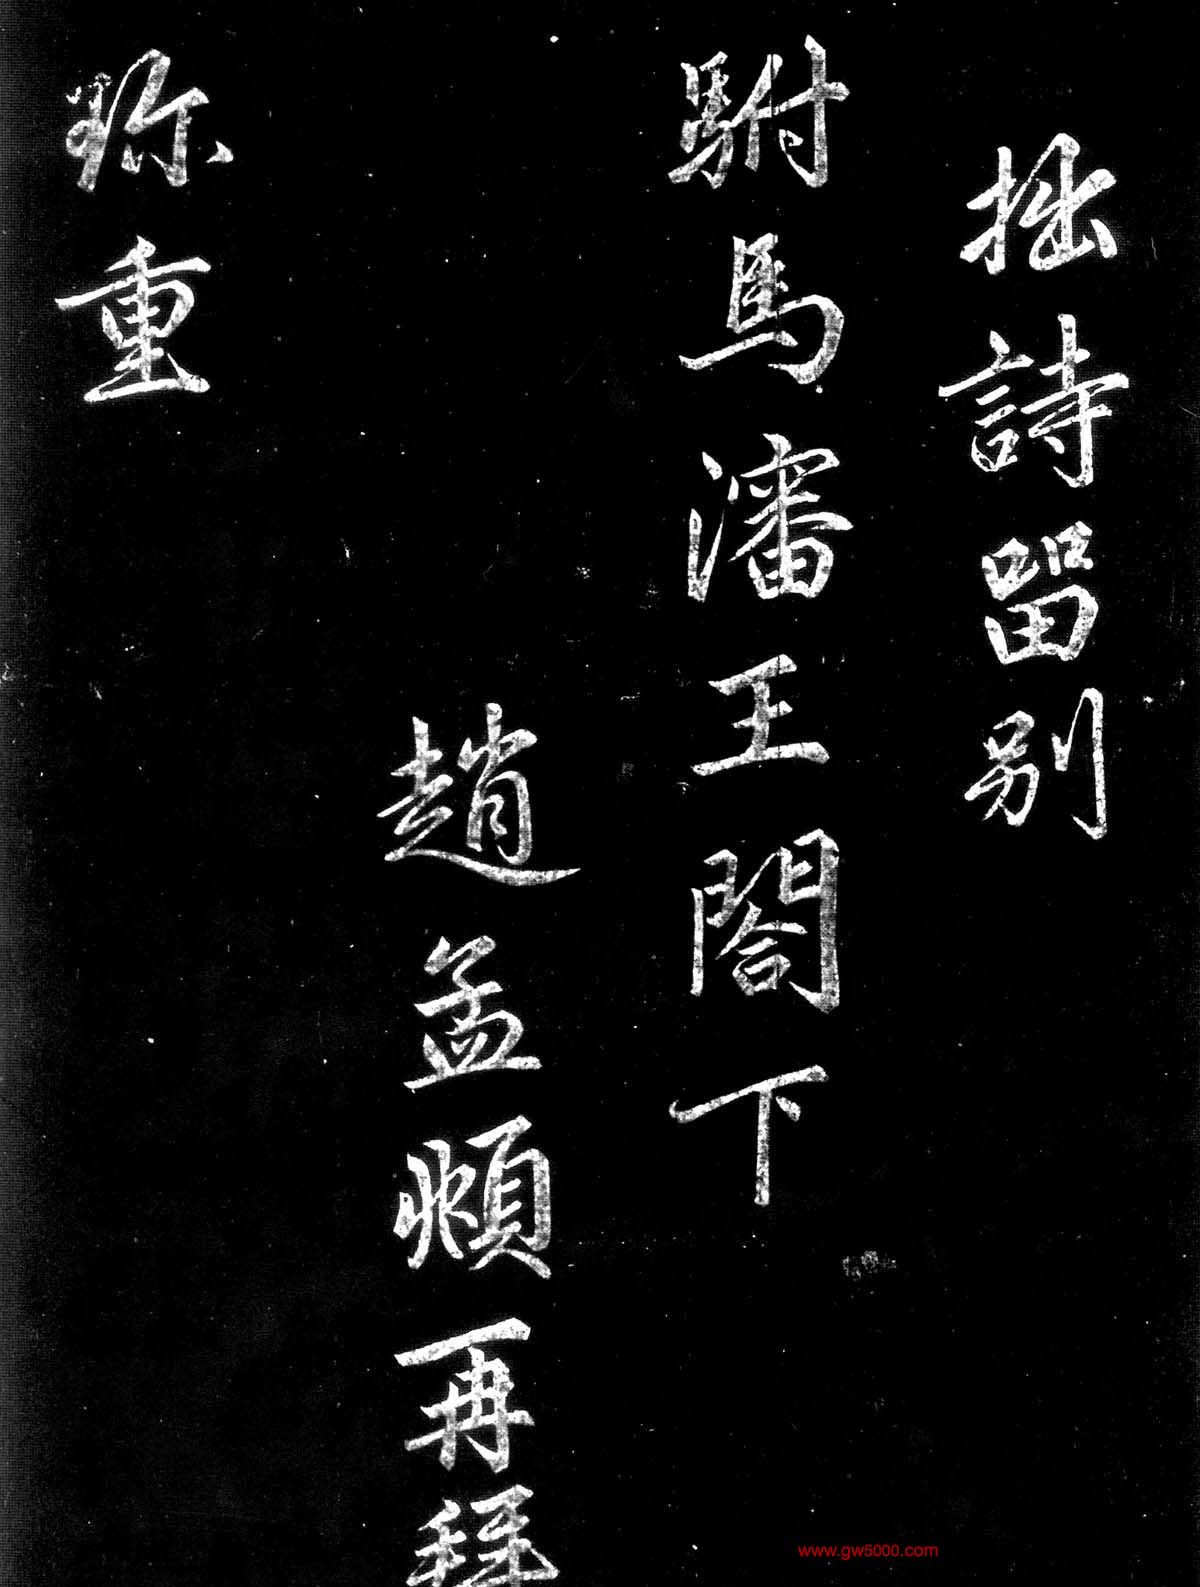 拙詩留別
駙馬瀋王閤下
趙孟頫再拜
珎重
www.gw5000.com